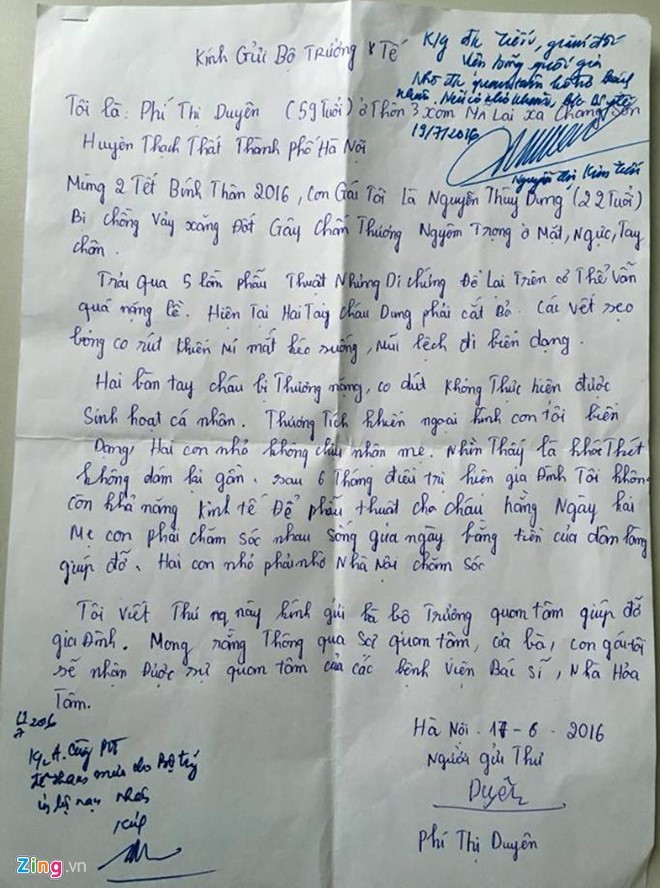 Kính Gửi Bộ Trưởng Y Tế
K/g đ/c Tiến, giám đốc
Viện bỏng quốc gia
Nhờ đ/c quan tâm hỗ trợ bệnh
nhân. Nếu có khó khăn, b/c Bộ Y tế
19/7/2016
Nguyễn Thị Kim Tiến
Tôi là: Phí Thị Duyên (59 Tuổi) ở Thôn 3 xóm Mn Lai xã Chàng Sơn
Huyện Thạch Thất Thành phố Hà Nội
Mùng 2 Tết Bính Thân 2016, Con Gái Tôi Là Nguyễn Thùy Dung (22 Tuổi)
Bị chồng Vảy xăng Đốt Gây Chấn Thương Ngyêm Trọng ở Mặt, Ngực, Tay
chân.
Trải Qua 5 lần phẫu Thuật Nhửng Di chứng Để Lại Trên cơ Thể Vẫn
quá nặng lề. Hiện Tại Hai Tai cháu Dung phải cắt Bỏ. Các vết sẹo
bỏng co rút khiến mí mắt kéo xuống, Mũi lệch đi biến dạng.
Hai bàn tay cháu bị Thương nặng, co dút không Thực hiện được
Sinh hoạt cá nhân. Thương Tích khiến ngoại hình con tôi biến
Dạng, Hai con nhỏ không chịu nhận mẹ. Nhìn Thấy là khóc Thét
không dám lại gần. sau 6 Tháng điều trị hiện gia Đình Tôi không
còn khả năng kinh tế Để phẫu thuật cho cháu hằng Ngày hai
Mẹ con phải chăm sóc nhau sống qua ngày bằng tiền của dân làng
giúp đỡ. Hai con nhỏ phải nhờ Nhà Nội chăm sóc
Tôi Viết Thư nq này kính gửi bà bộ Trưởng quan tâm giúp đỡ
gia Đình. Mong rằng Thông qua Sự quan tâm, của bà, con gái tôi
sẽ nhận Được sự quan tâm của các bệnh viện Bác sĩ, Nhà Hảo
Tâm.
Hà Nội . 17 - 6 - 2016
Người gửi Thư
Duyên
Phí Thị Duyên
2016
Kg A. PVT
để tham mưu cho Bộ trg
Zing.vn